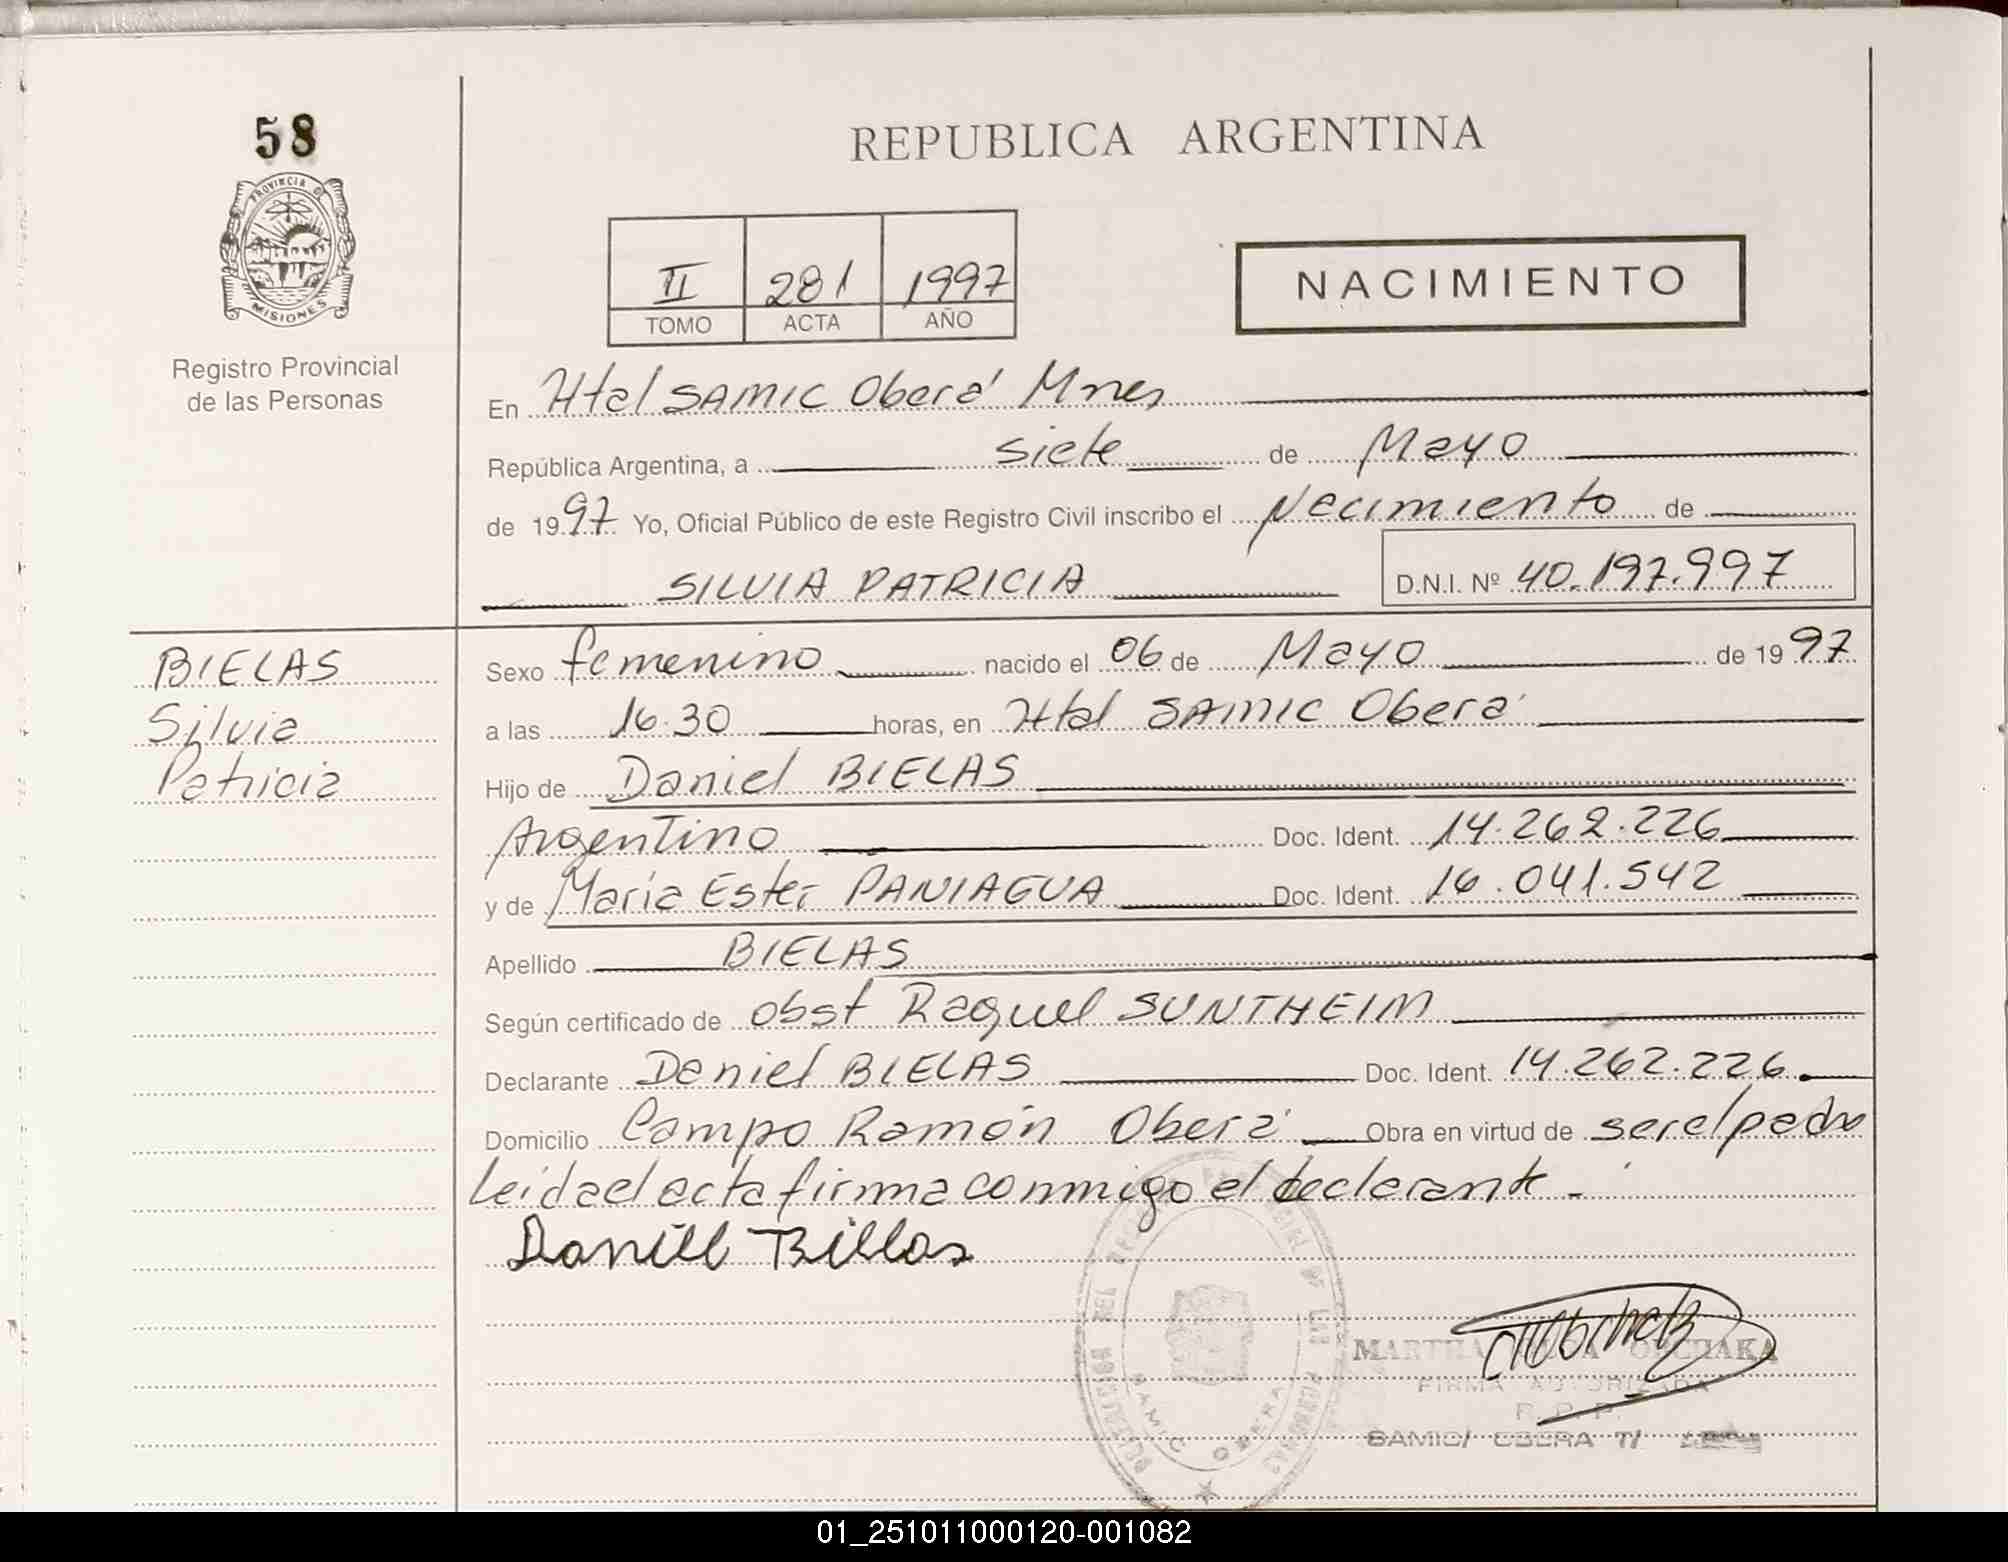 58
REPUBLICA ARGENTINA
PROVINCIA DE
MISIONES
Registro Provincial
de las Personas
II 281 1997
TOMO ACTA AÑO
NACIMIENTO
En Htal SAMIC Oberá Mnes
República Argentina, a siete de Mayo
de 1997 Yo, Oficial Público de este Registro Civil inscribo el Nacimiento de
SILVIA PATRICIA D.N.I. Nº 40.197.997
BIELAS
Silvia
Patricia
Sexo femenino nacido el 06 de Mayo de 1997
a las 16.30 horas, en Htal SAMIC Oberá
Hijo de Daniel BIELAS
Argentino Doc. Ident. 14.262.226
y de María Ester PANIAGUA Doc. Ident. 16.041.542
Apellido BIELAS
Según certificado de obst Raquel SUNTHEIM
Declarante Daniel BIELAS Doc. Ident. 14.262.226
Domicilio Campo Ramón Oberá Obra en virtud de ser el padre
Leida el acta firma conmigo el declarante.
Daniel Billas
MARTHA OBCHAKA
FIRMA AUTORIZADA
R. P. P.
SAMIC/ OBERA
SAMIC OBERA
01_251011000120-001082